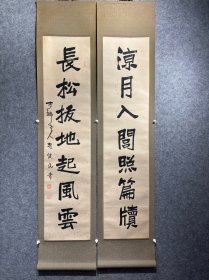 涼月入閣照篇牘
長松拔地起風雲